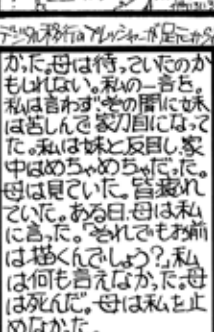 デジタル移行のプレッシャーが足にから
かった。母は待っていたのか
もしれない。私の一言を。
私は言わず、その間に妹
は苦しんで家刀目になって
た。私は妹と反目し、家
中はめちゃめちゃだった。
母は見ていた。皆疲れ
ていた。ある日、母は私
に言った。「それでもお前
は描くんでしょう?」私
は何も言えなかった。母
は死んだ。母は私を止
めなかった。